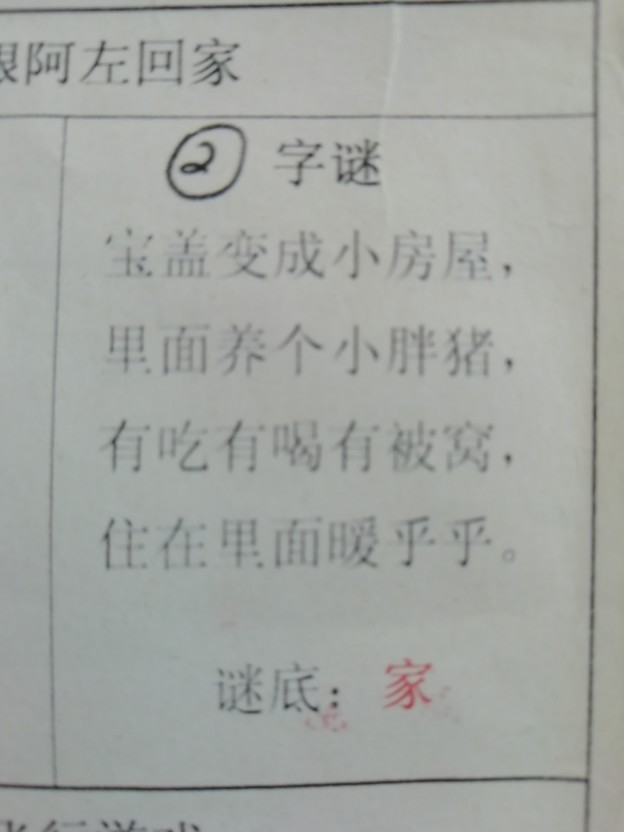 跟阿左回家
② 字谜
宝盖变成小房屋，
里面养个小胖猪，
有吃有喝有被窝，
住在里面暖乎乎。
谜底：家